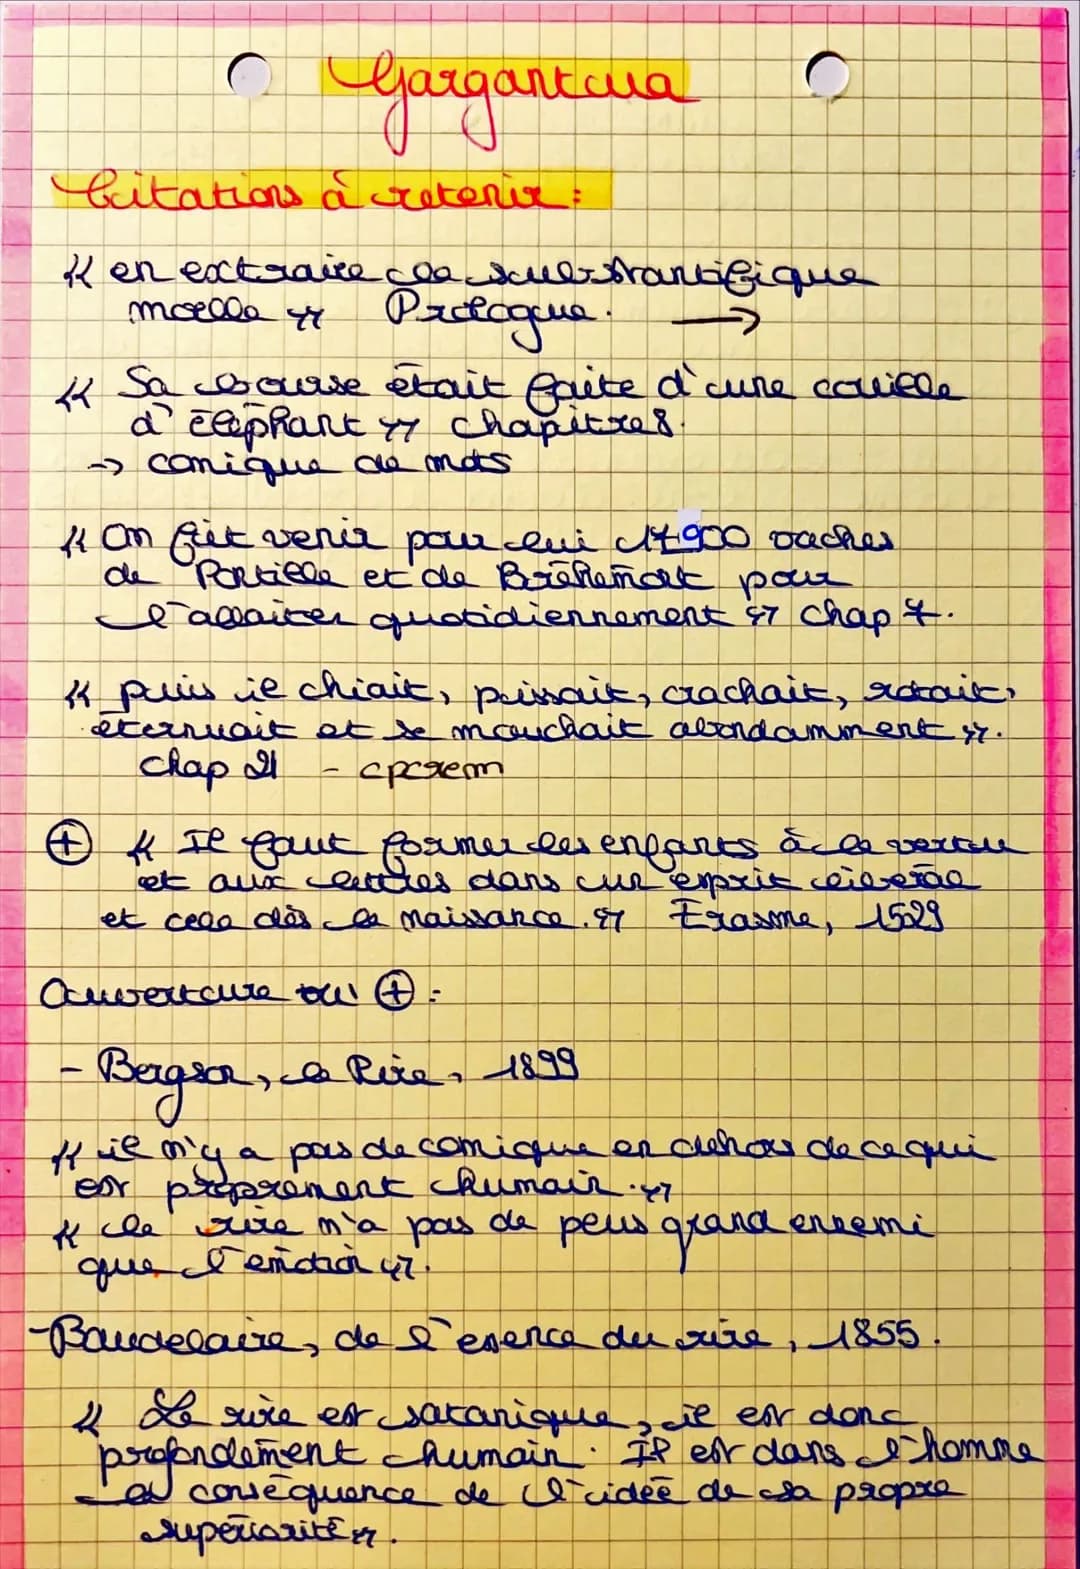 Gargantua
Citations à retenir :
« en extraire la substantifique
moelle » Prologue. →
« Sa bourse était faite d'une couille
d'éléphant » chapitre 8.
-> comique de mots
« On fit venir pour lui 17900 vaches
de Pontille et de Bréhémont pour
l'allaiter quotidiennement » chap 7.
« puis il chiait, pissait, crachait, rotait,
éternuait et se mouchait abondamment ».
chap 21 -
⊕ « Il faut former les enfants à la vertu
et aux lettres dans un esprit libéral
et cela dès la naissance. » Erasme, 1529
Ouverture ou ⊕ :
- Bergson, le Rire, 1899
« il n'y a pas de comique en dehors de ce qui
est proprement humain. »
« le rire n'a pas de plus grand ennemi
que l'émotion ».
- Baudelaire, de l'essence du rire, 1855.
« Le rire est satanique, il est donc
profondément humain. Il est dans l'homme
la conséquence de l'idée de sa propre
supériorité ».